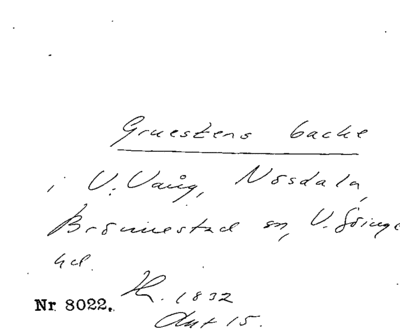 Gruestens backe
i V. Vång, Nösdala,
Brönnestad sn, V. Göinge
hd.
Nr 8022. Kr. 1832
Akt 15.